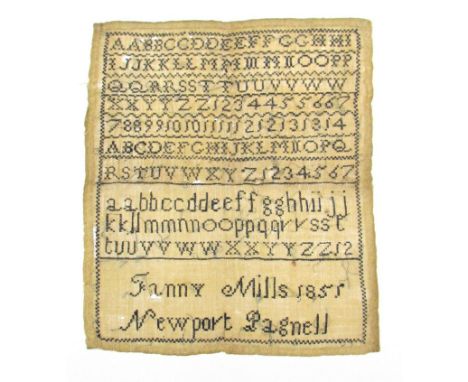 AABBCCDDEEFFGGHHI
IJJKKLLMMNNOOPP
QQRRSSTTUUVVWW
XXYYZZ1234455667
ABCDEFGHIJKLMNOPQ
RSTUVWXYZ1234567
aabbccddeeffgghhiijj
kkllmmnnooppqqrrsst
tuuVVWWXXYYZZ12
Fanny Mills 1851
Newport Pagnell